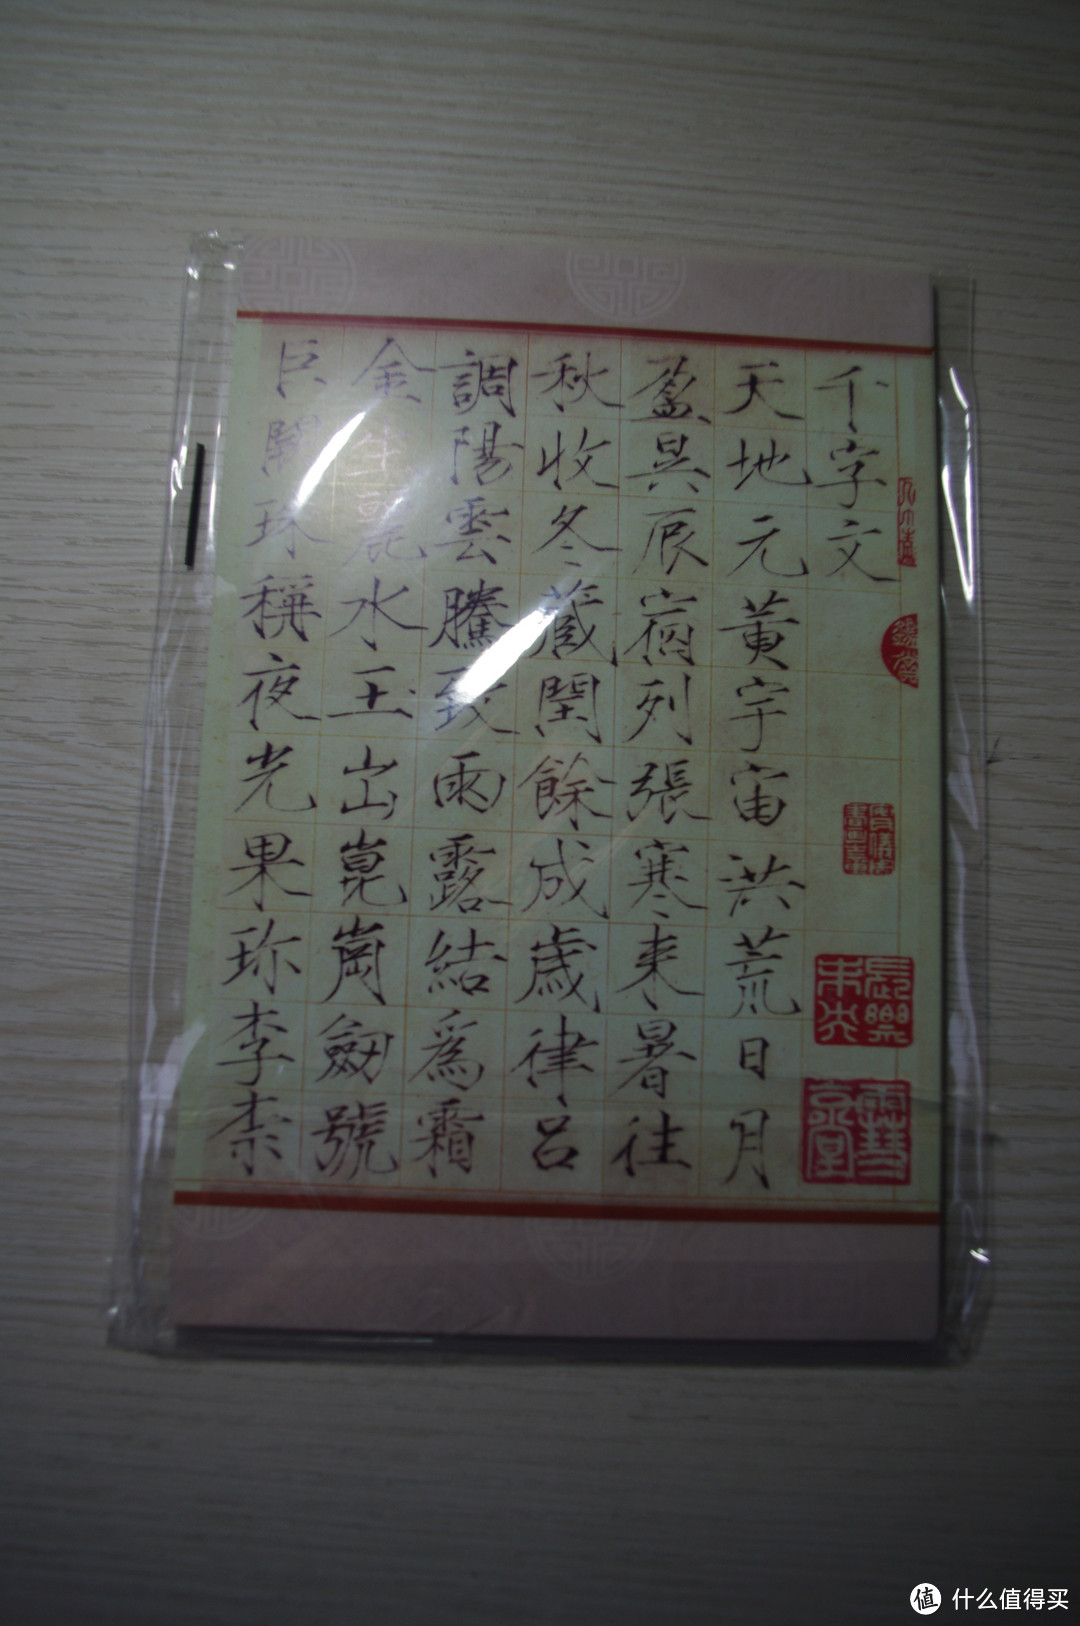 千字文
天地元黄宇宙洪荒日月
盈昃辰宿列張寒来暑往
秋收冬蔵閏餘成歲律呂
調陽雲騰致雨露結爲霜
金生麗水玉出崑崗劒號
巨闕珠稱夜光果珎李柰
長樂未央
值 什么值得买